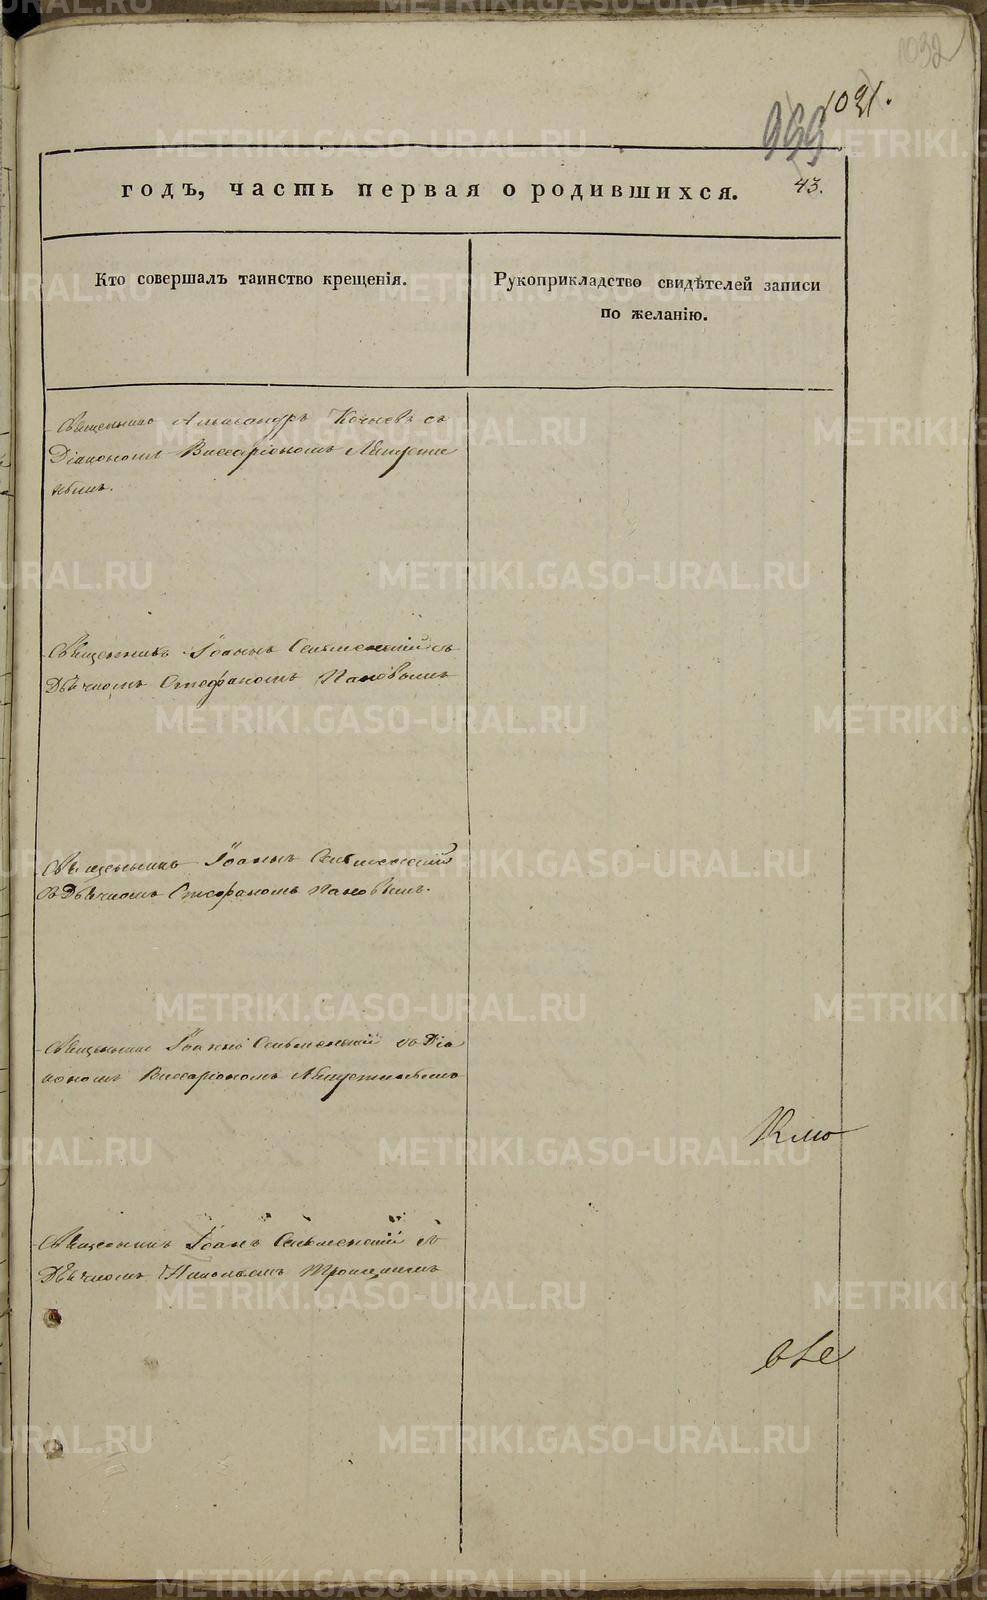 1032
1021.
999
годъ, часть первая о родившихся. 43.
Кто совершалъ таинство крещенія.
Рукоприкладство свидѣтелей записи
по желанію.
Священникъ Александръ Кочневъ съ
Діакономъ Виссаріономъ
Священникъ Іоаннъ Сельменскій съ
Дьячкомъ Стефаномъ Пановымъ
Священникъ Іоаннъ Сельменскій
съ Дьячкомъ Стефаномъ Пановымъ.
Священникъ Іоаннъ Сельменскій съ Діа
кономъ Виссаріономъ
Священникъ Іоанъ Сельменскій съ
Дьячкомъ Николаемъ
METRIKI.GASO-URAL.RU